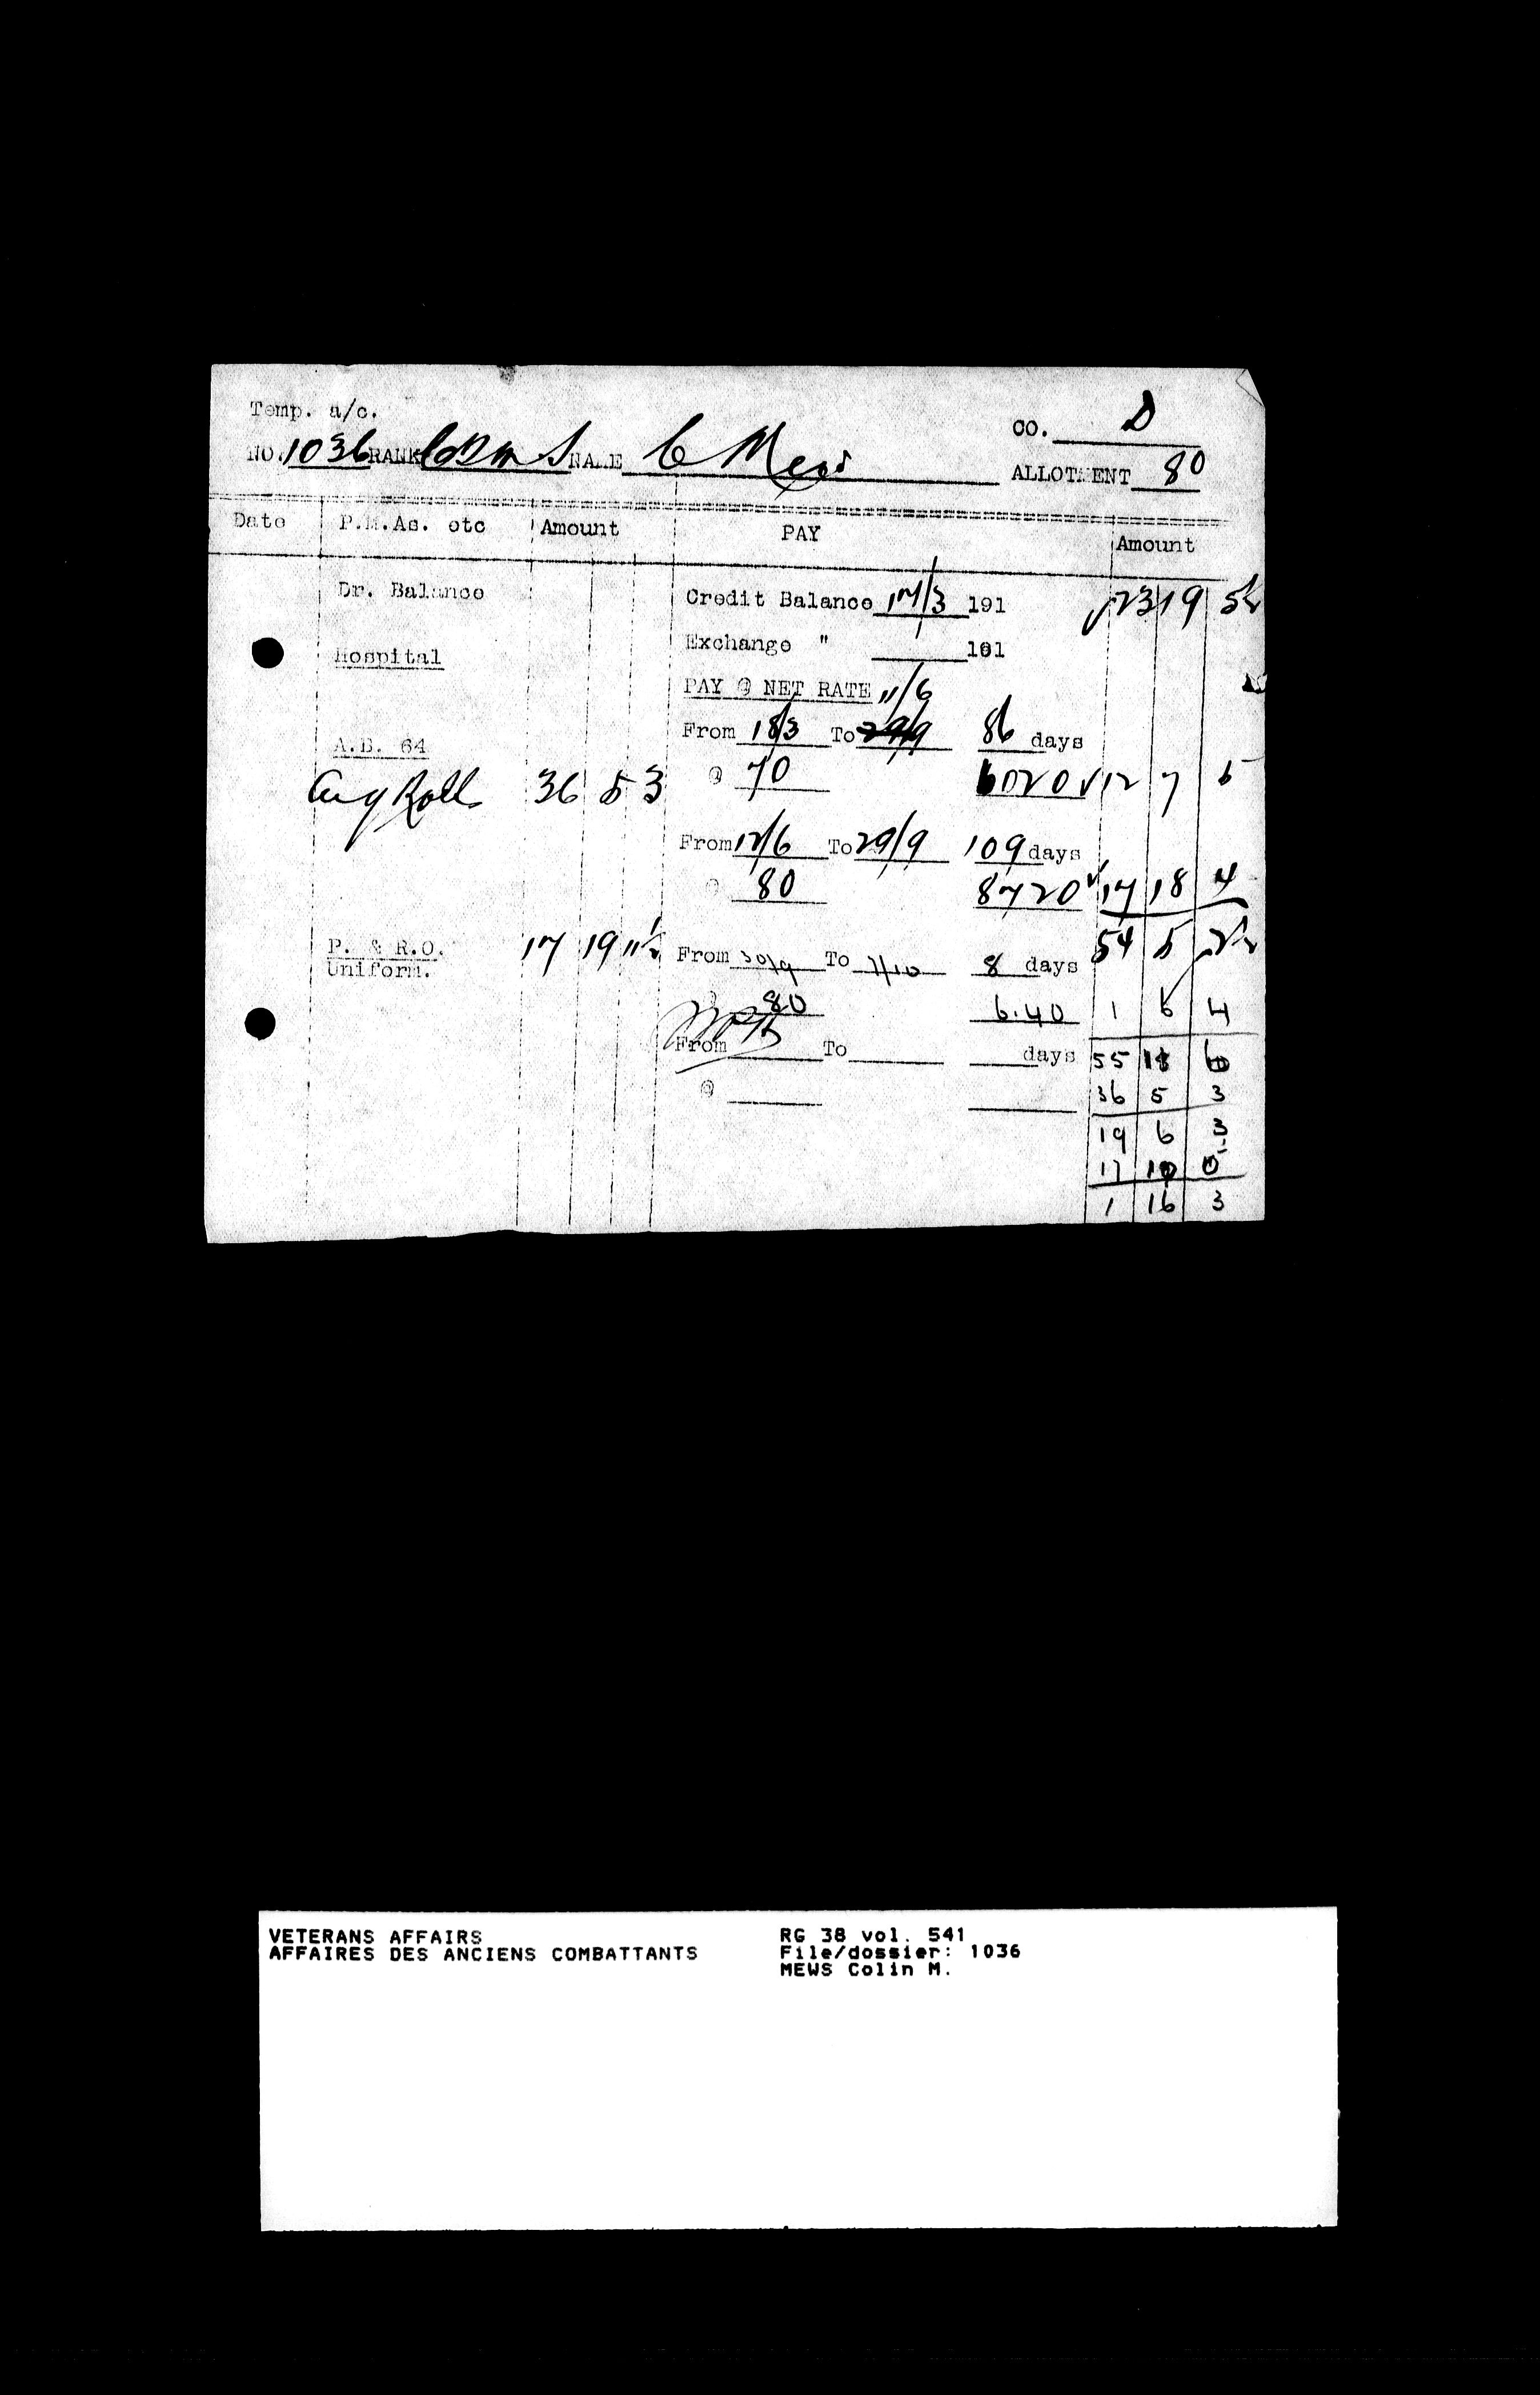 Temp. a/c.
CO. D
NO. 1036 RANK CQMS NAME C Mews
ALLOTMENT 80
Date P.M.As. etc Amount PAY Amount
Dr. Balance Credit Balance 17/3 191 23 19 5½
Exchange " 191
Hospital
PAY @ NET RATE 11/6
From 18/3 To 86 days
A.B. 64
@ 70 6020 12 7 5
Rolls 36 5 3
From 12/6 To 29/9 109 days
@ 80 8720 17 18 4
54 5 2½
P. & R.O. 17 19 11½ From 30/9 To 7/10 8 days
Uniform.
@ 80 6.40 1 6 4
From To days 55 11 6
@ 36 5 3
19 6 3
17 10 0
1 16 3
VETERANS AFFAIRS RG 38 vol. 541
AFFAIRES DES ANCIENS COMBATTANTS File/dossier: 1036
MEWS Colin M.